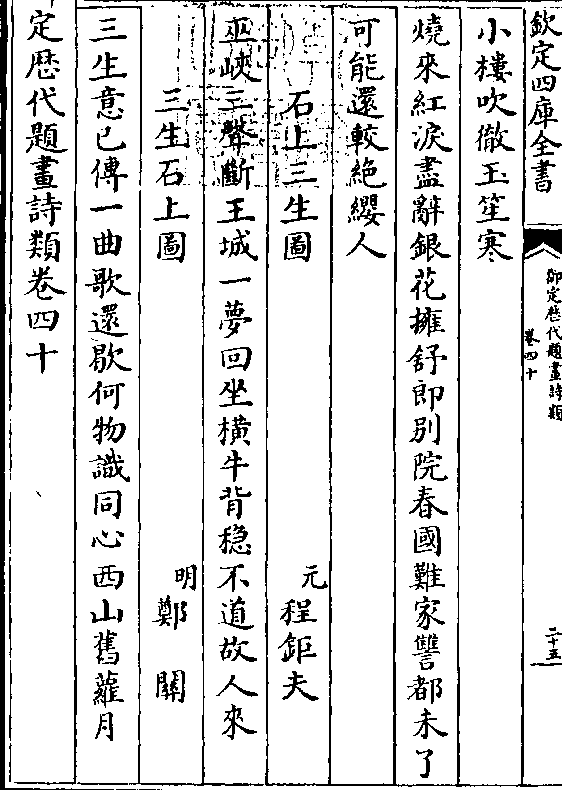 欽定四庫全書
御定歴代題畫詩類
卷四十
二十五
小樓吹徹玉笙寒
燒來紅淚盡辭銀花擁舒郎別院春國難家讐都未了
可能還較絶纓人
石上三生圖
元程鉅夫
巫峽三聲斷王城一夢回坐橫牛背穏不道故人來
三生石上圖
明鄭關
三生意已傳一曲歌還歇何物識同心西山舊蘿月
定歴代題畫詩類卷四十